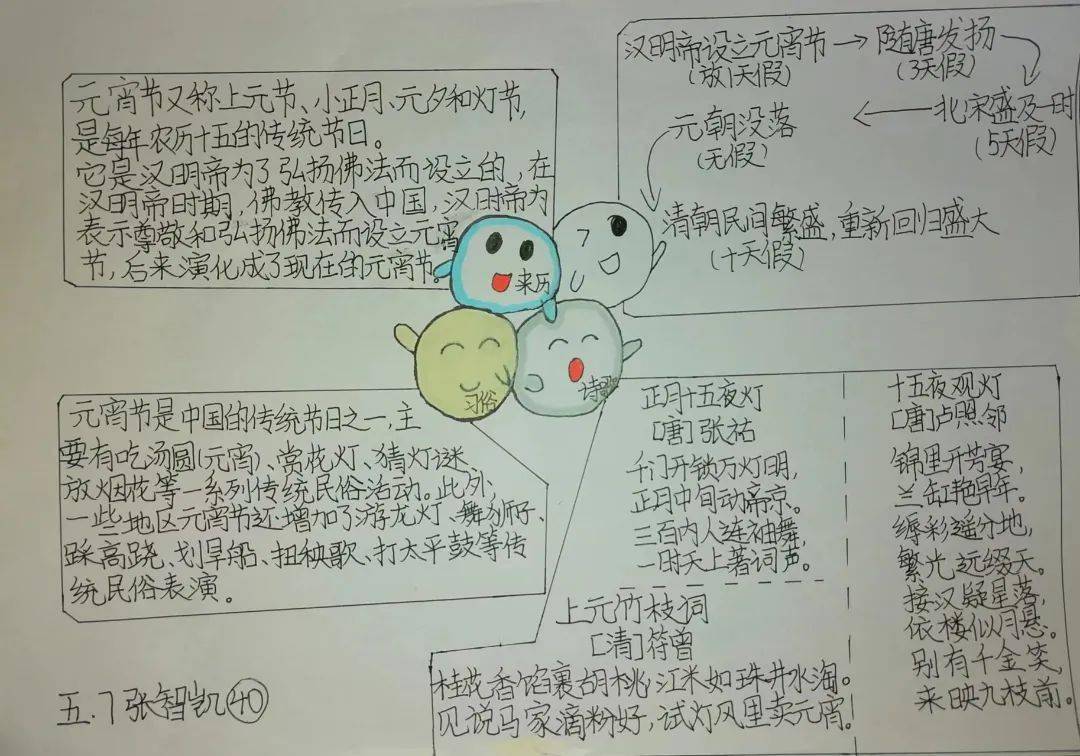 元宵节又称上元节、小正月、元夕和灯节,
是每年农历十五的传统节日。
它是汉明帝为了弘扬佛法而设立的,在
汉明帝时期,佛教传入中国,汉明帝为
表示尊敬和弘扬佛法而设立元宵
节,后来演化成了现在的元宵节。
来历
汉明帝设立元宵节→隋唐发扬
(放1天假)
(3天假)
北宋盛及一时
(5天假)
元朝没落
(无假)
清朝民间繁盛,重新回归盛大
(十天假)
习俗
诗歌
元宵节是中国的传统节日之一,主
要有吃汤圆(元宵)、赏花灯、猜灯谜
放烟花等一系列传统民俗活动。此外,
一些地区元宵节还增加了游龙灯、舞狮子、
踩高跷、划旱船、扭秧歌、打太平鼓等传
统民俗表演。
正月十五夜灯
[唐]张祜
千门开锁万灯明,
正月中旬动帝京。
三百内人连袖舞,
一时天上著词声。
十五夜观灯
[唐]卢照邻
锦里开芳宴,
兰缸艳早年。
缛彩遥分地,
繁光远缀天。
接汉疑星落,
依楼似月悬。
别有千金笑,
来映九枝前。
上元竹枝词
[清]符曾
桂花香馅裹胡桃,江米如珠井水淘。
见说马家滴粉好,试灯风里卖元宵。
五.7张智凯40